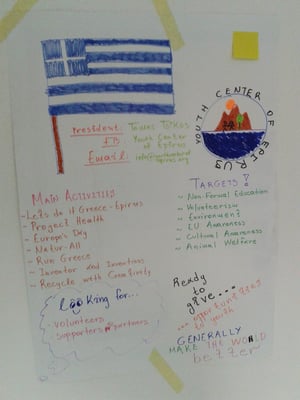 YOUTH CENTER OF EPIRUS
President: Thomas
FB: Youth Center of Epirus
Email:
MAIN ACTIVITIES
- Let's do it Greece-Epirus
- Project Health
- Europe's Day
- Natur-All
- Run Greece
- Inventor and Inventions
- Recycle with Creativity
TARGETS!
~ Non-Formal Education
~ Volunteerism
~ Environment
~ EU Awareness
~ Cultural Awareness
~ Animal Welfare
looking for...
- volunteers
- supporters partners
Ready
to
give...
... opportunities
to youth
GENERALLY
MAKE THE WORLD
better